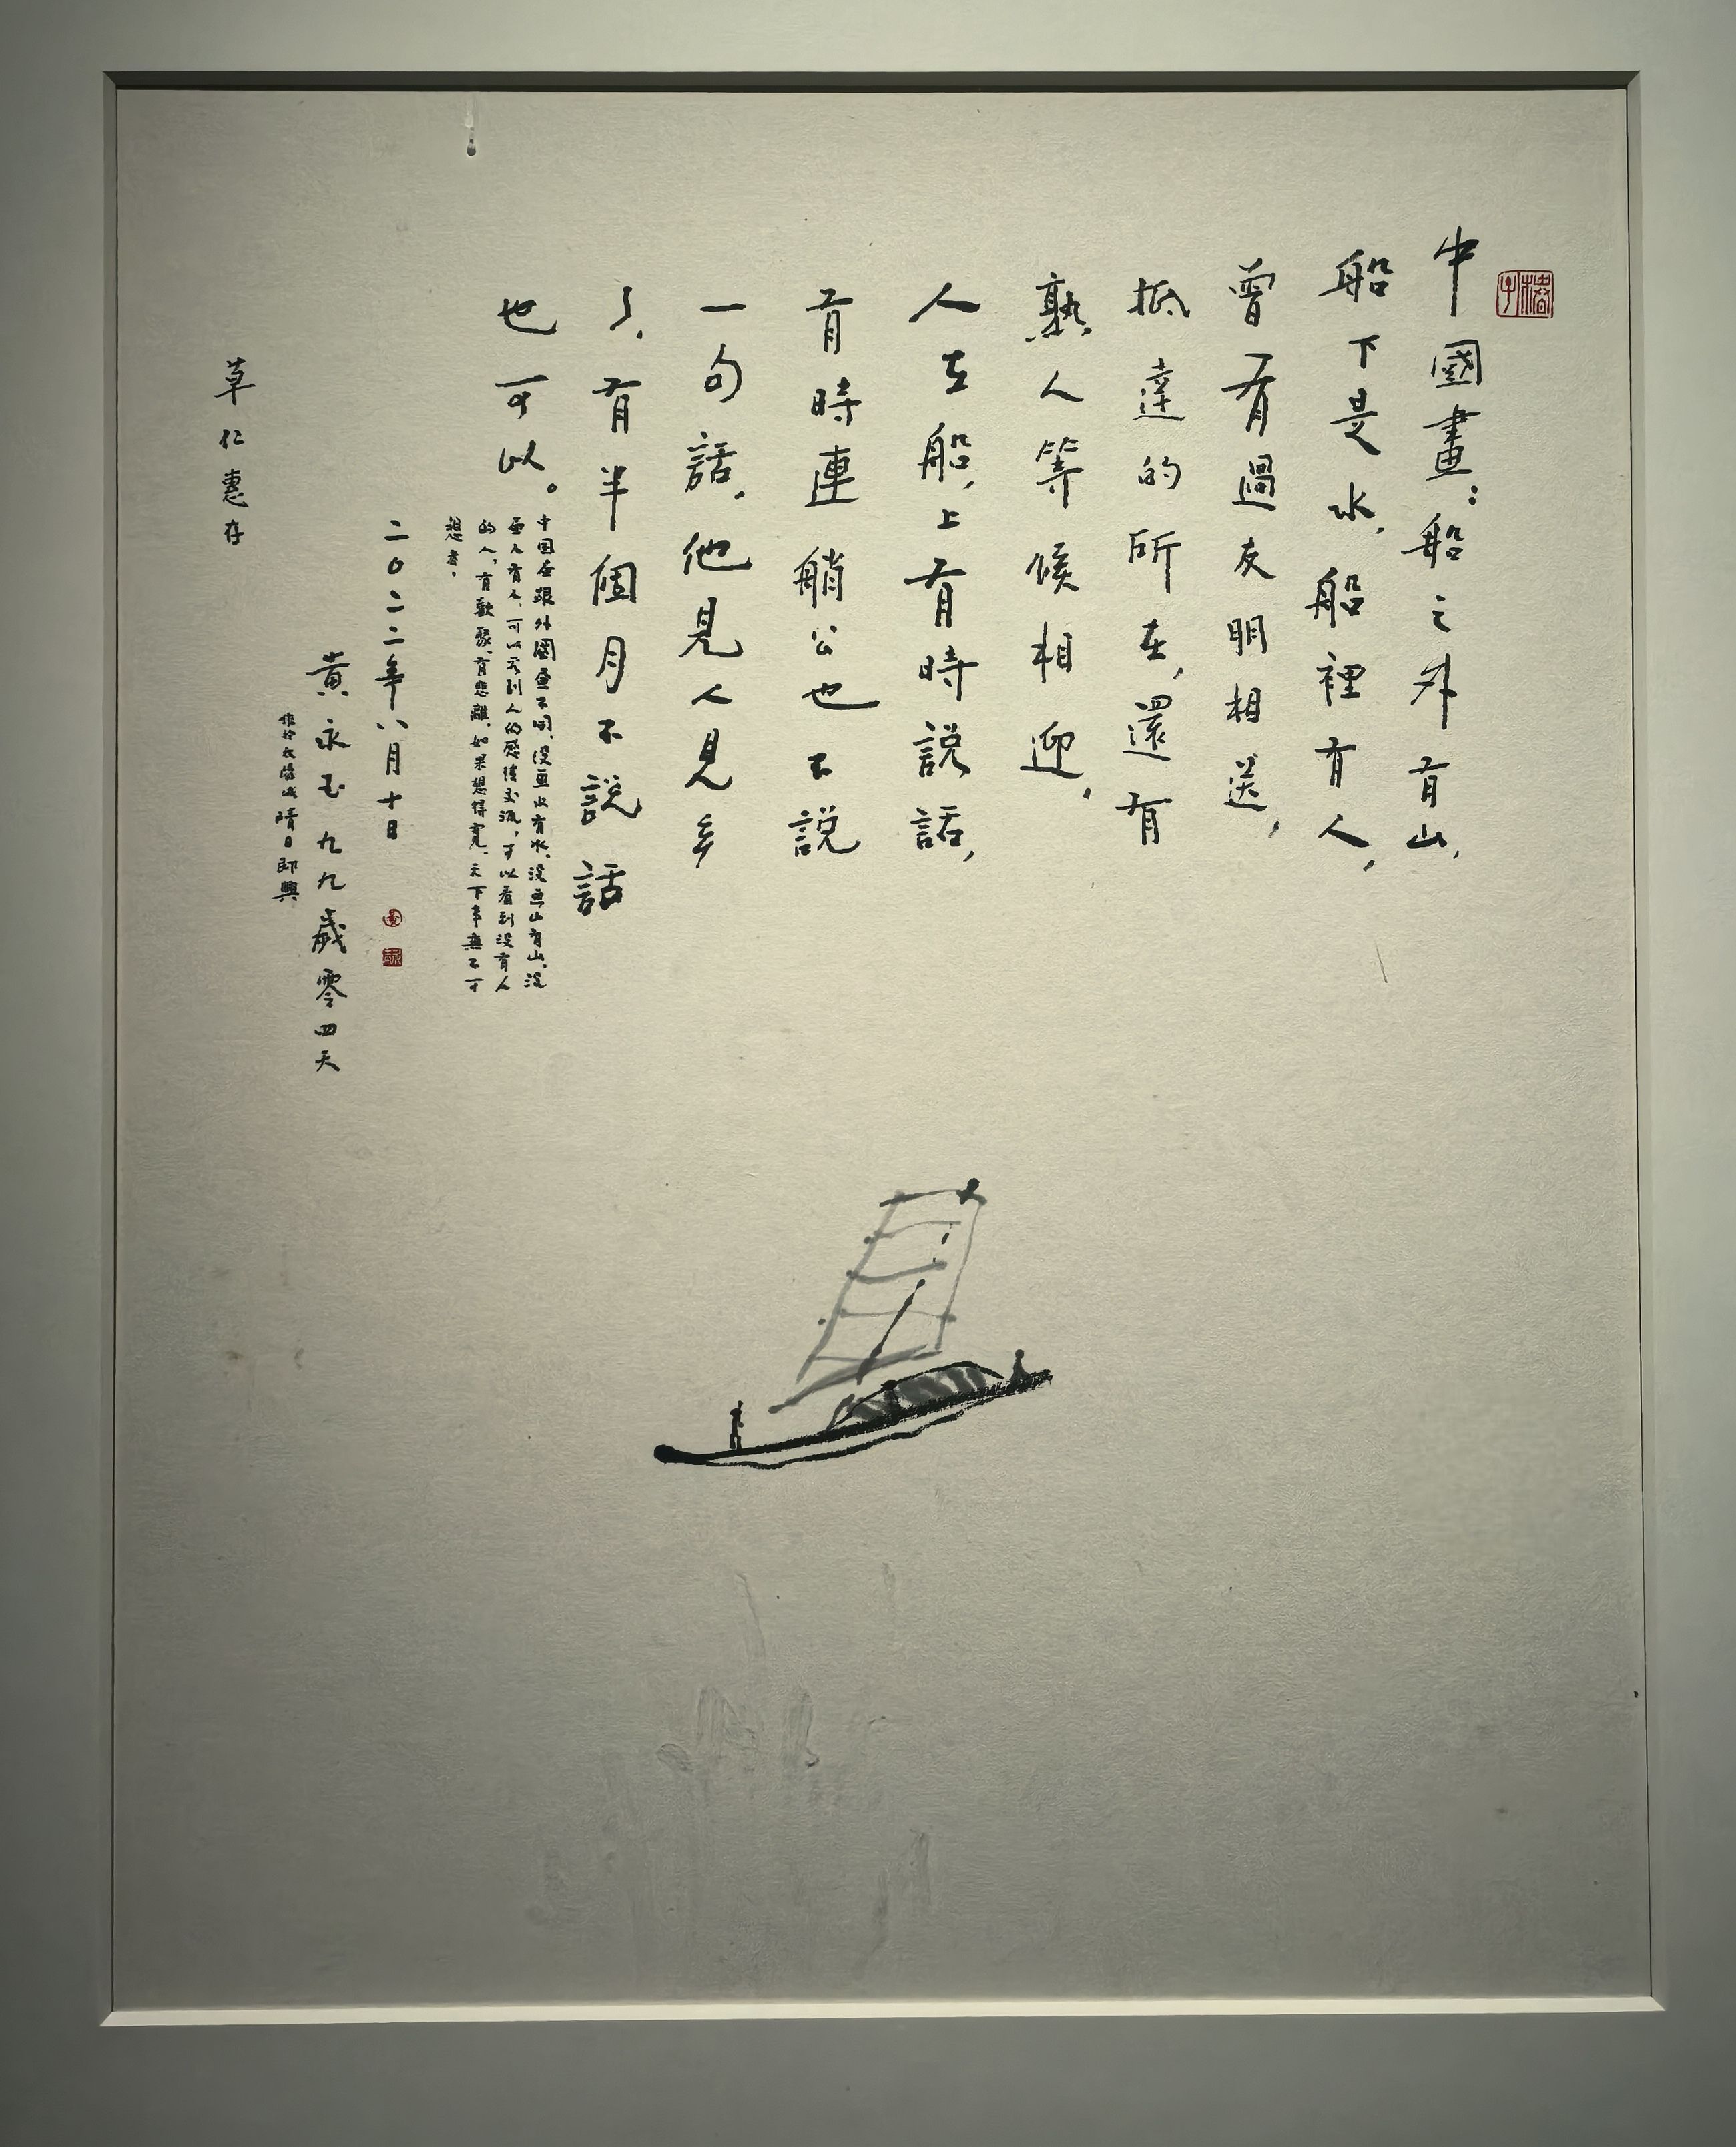 中國畫：船之外有山，
船下是水，船裡有人，
曾有過友朋相送，
抵達的所在，還有
熟人等候相迎，
人在船，上有時説話，
有時連艄公也不説
一句話，他見人見多
了，有半個月不説話
也可以。
中国画跟外國畫不同，没画水有水，没画山有山，没
画人有人，可以看到人的感情交流，可以看到没有人
的人，有歡聚，有悲離，如果想得寬，天下事無不可
想者。
二〇二二年八月十日
黃永玉九九歲零四天
作於太陽城晴日即興
草仁惠存